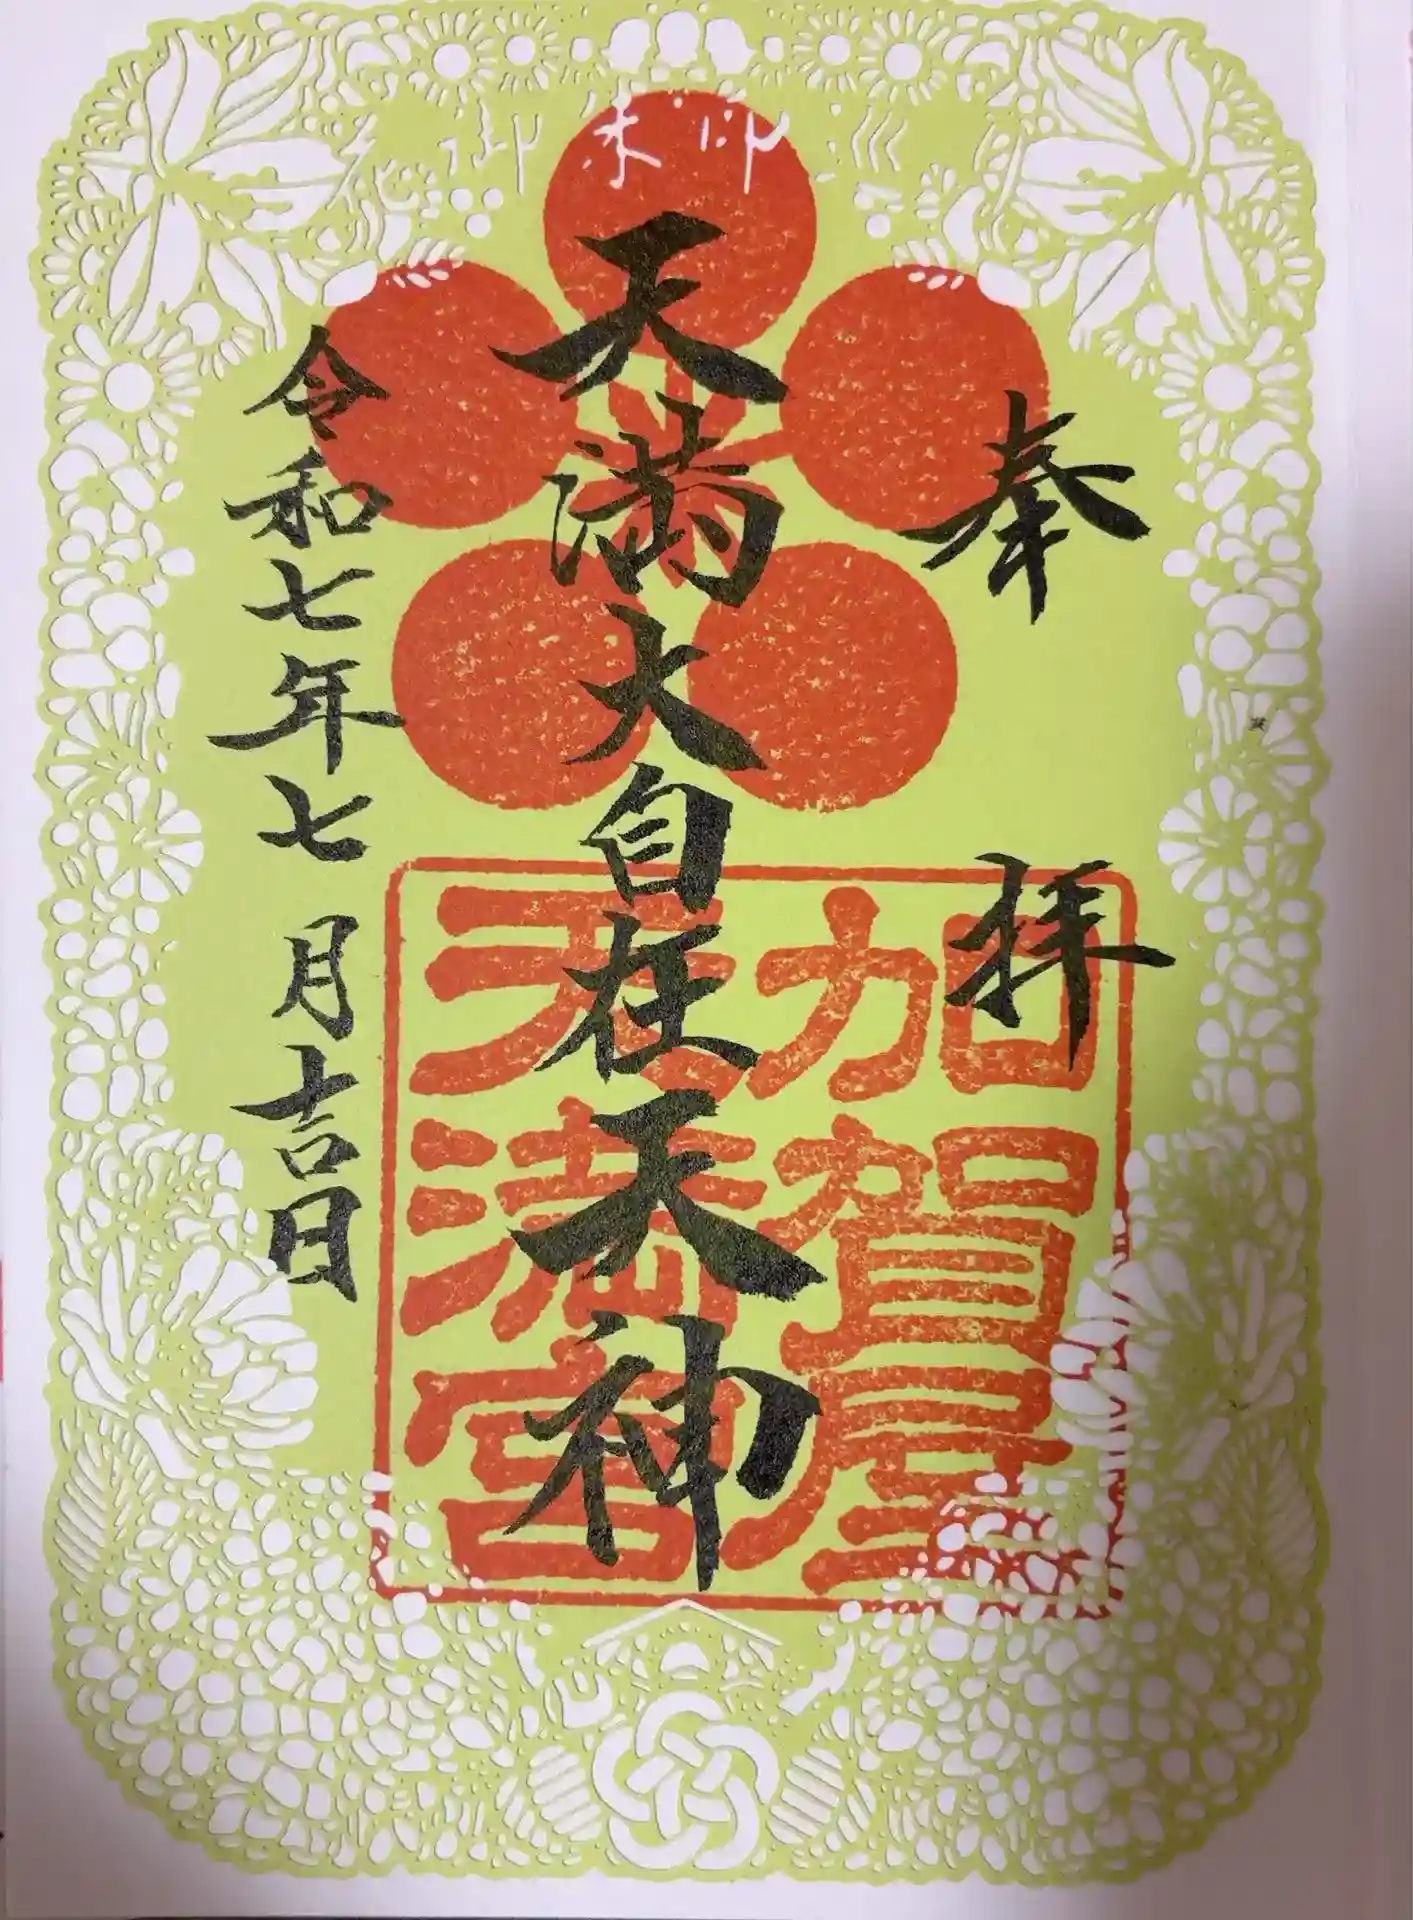 奉拝
天満大自在天神
令和七年七月吉日
加賀屋
天満宮